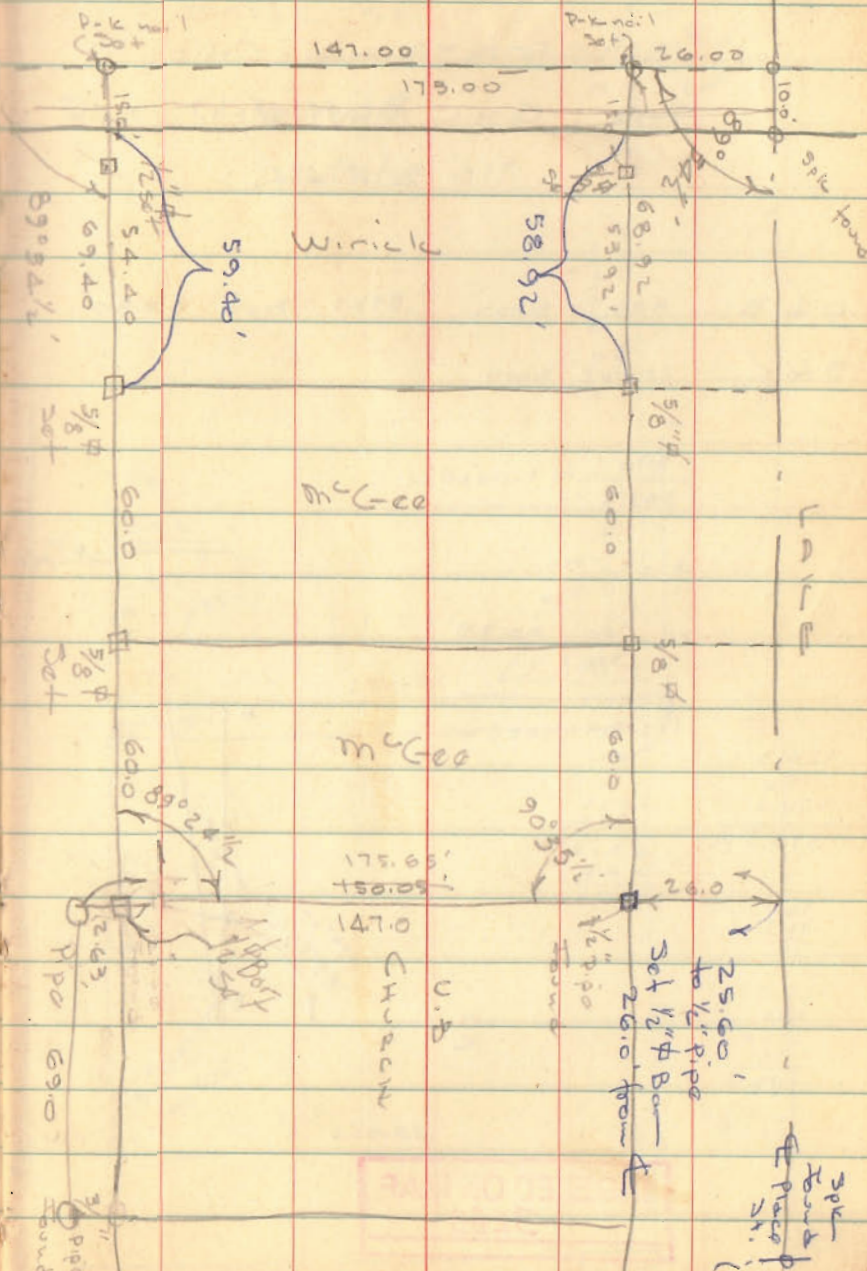 P-K nail
set
147.00
175.00
P-K nail
set
26.00
10.0'
Spk
found
15.0'
54.40
69.40
59.40'
Wirick
58.92'
15.0
68.92
53.92'
5/8 ø
set
5/8"ø
60.0
McGee
60.0
LAKE
5/8 ø
set
5/8 ø
60.0
McGee
60.0
89° 24 1/2
90° 35 1/2
175.65'
150.05'
147.0
26.0
2.63'
Pipe
69.0
U.B
CHURCH
1/2" Pipe
Found
25.60'
to 1/2" Pipe
Set 1/2" ø Bar
26.0' from ℄
Spk
Found
℄ Place
St.
3/4"
Pipe
Found